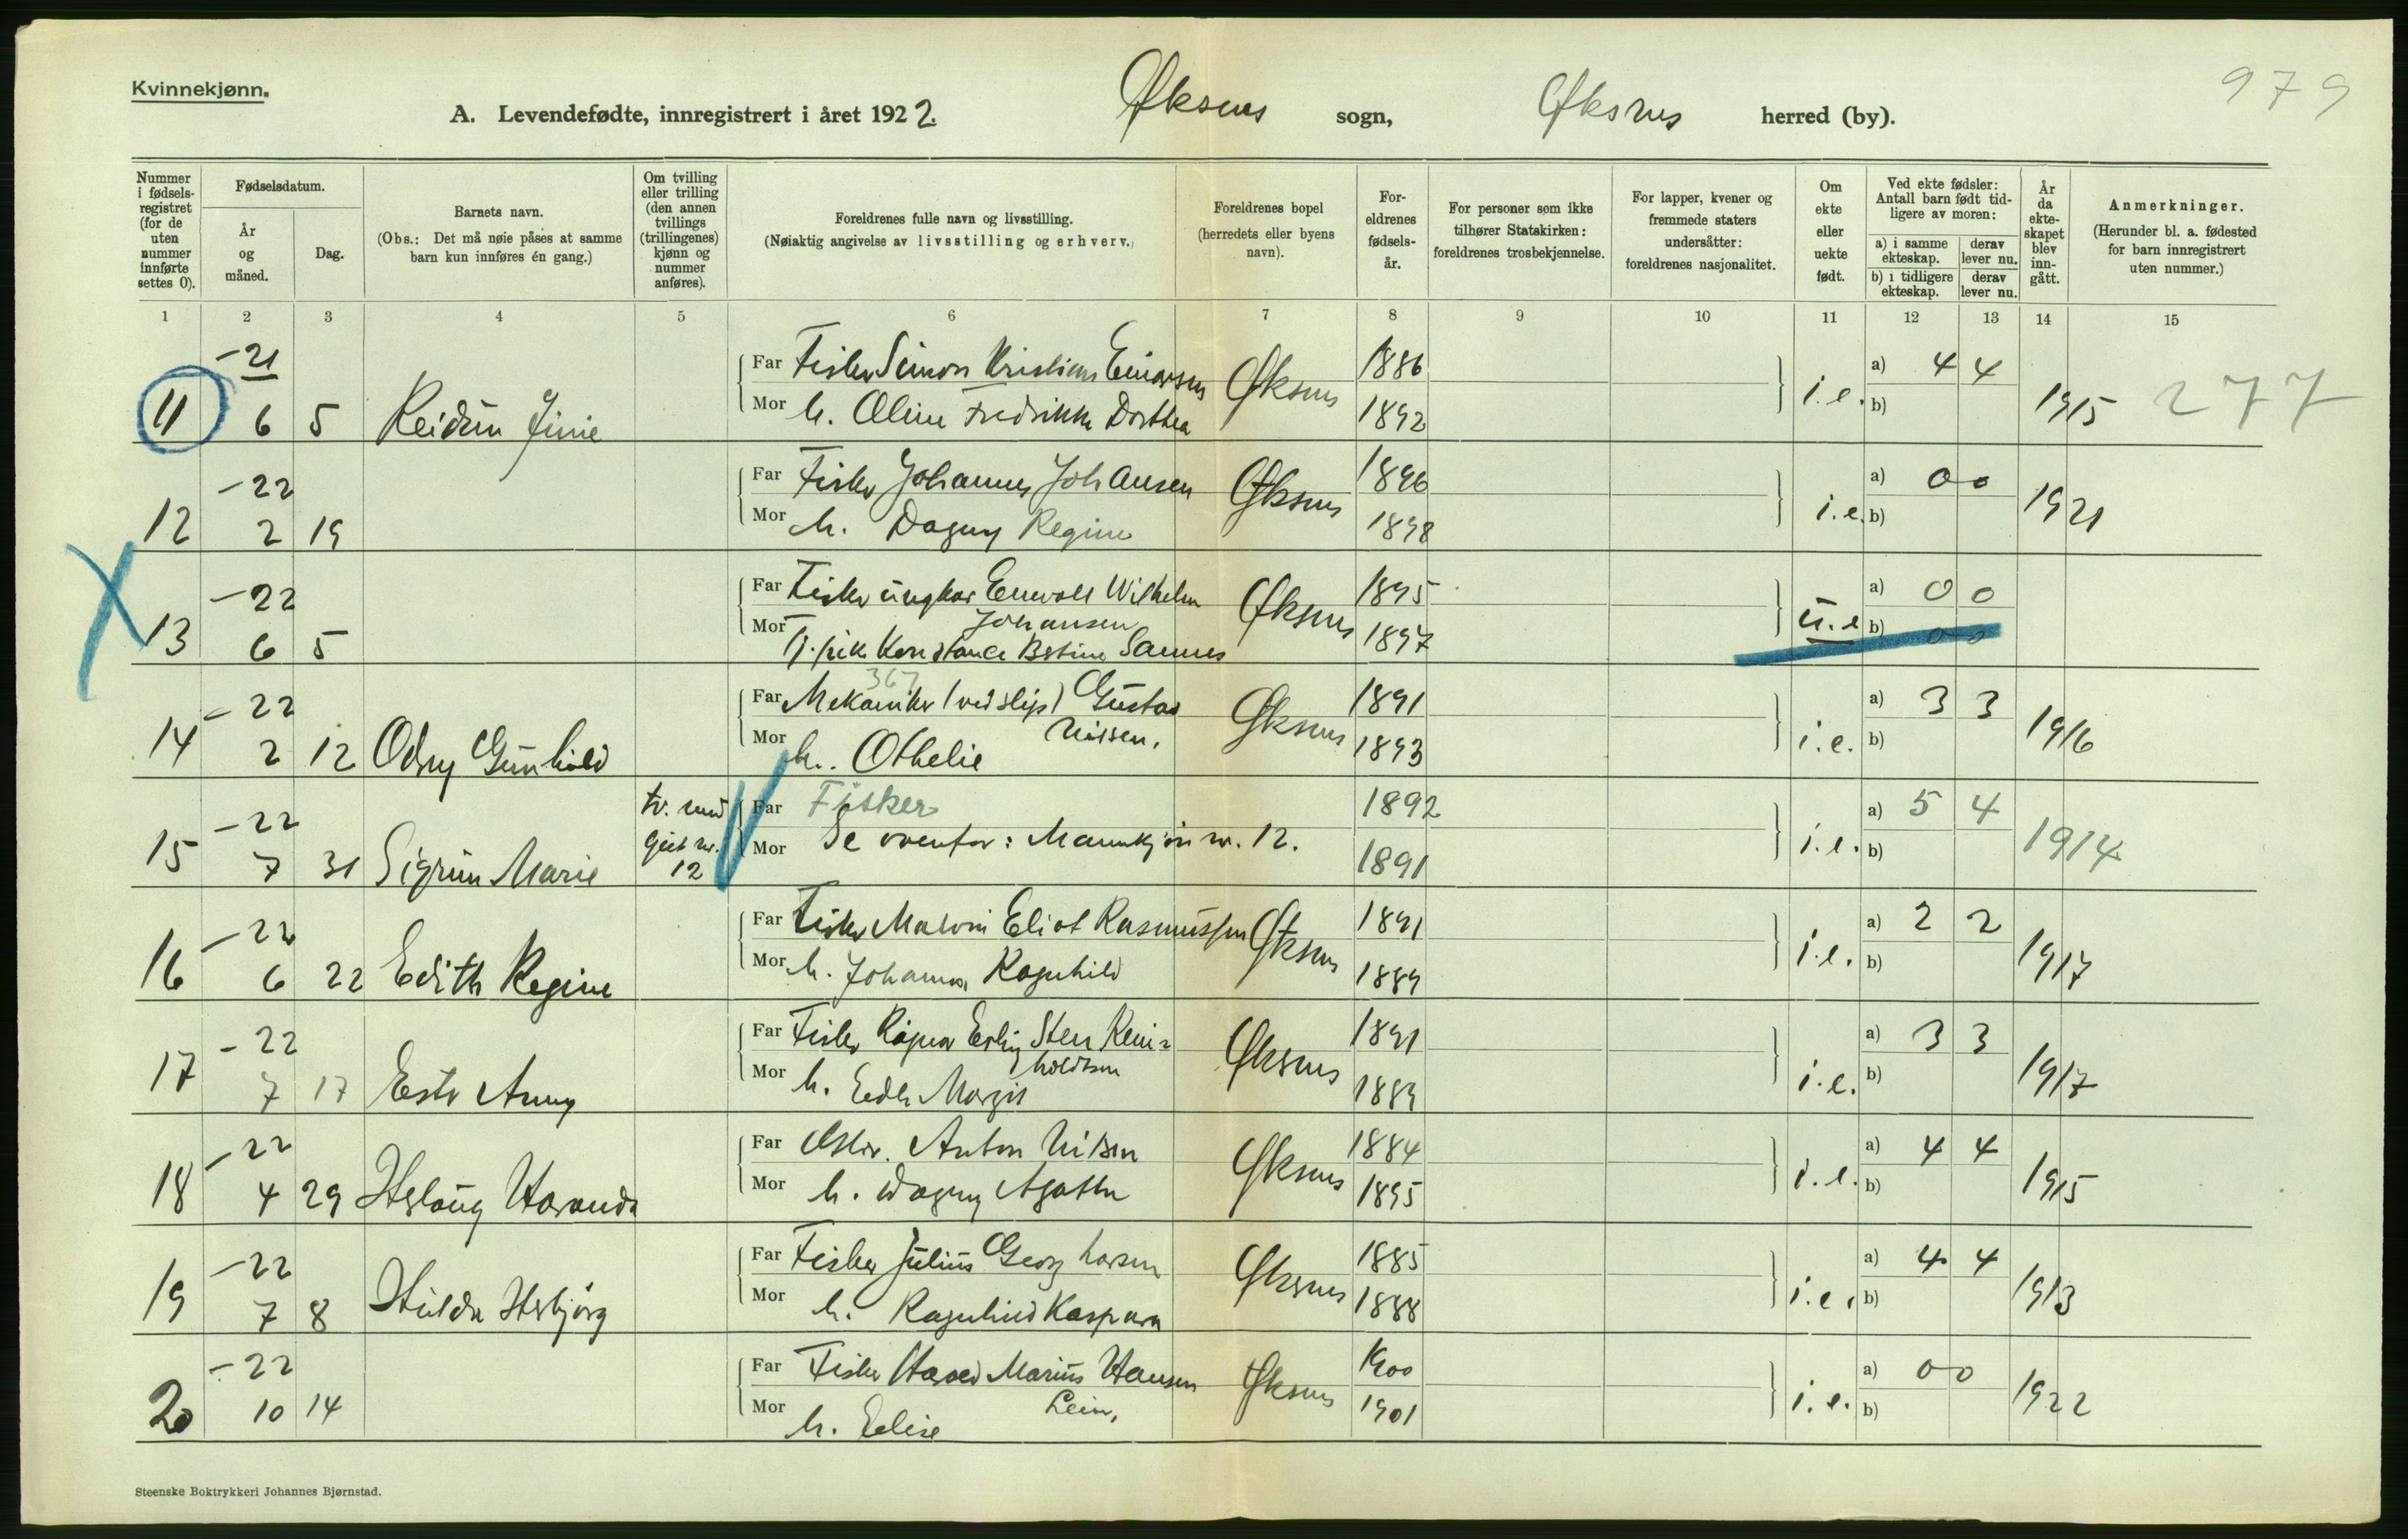 979
Kvinnekjønn.
A. Levendefødte, innregistrert i året 1922. Øksnes sogn, Øksnes herred (by).
Nummer i fødsels-registret (for de uten nummer innførte settes 0).
Fødselsdatum.
År og måned.
Dag.
Barnets navn.
(Obs.: Det må nøie påses at samme barn kun innføres én gang.)
Om tvilling eller trilling (den annen tvillings (trillingenes) kjønn og nummer anføres).
Foreldrenes fulle navn og livsstilling.
(Nøiaktig angivelse av livsstilling og erhverv.)
Foreldrenes bopel (herredets eller byens navn).
For-eldrenes fødsels-år.
For personer som ikke tilhører Statskirken: foreldrenes trosbekjennelse.
For lapper, kvener og fremmede staters undersåtter: foreldrenes nasjonalitet.
Om ekte eller uekte født.
Ved ekte fødsler: Antall barn født tid-ligere av moren:
a) i samme ekteskap. derav lever nu.
b) i tidligere ekteskap. derav lever nu.
År da ekte-skapet blev inn-gått.
Anmerkninger.
(Herunder bl. a. fødested for barn innregistrert uten nummer.)
1 2 3 4 5 6 7 8 9 10 11 12 13 14 15
-21
Far Fisker Simon Kristian Einarsen Øksnes 1886 a) 4 4
11 6 5 Reidun Jinie Mor h. Oline Fredrikke Dorthea 1892 i.e. b) 1915 277
-22
Far Fisker Johannes Johansen Øksnes 1896 a) 0 0
12 2 19 Mor h. Dagny Regine 1898 i.e. b) 1921
-22
Far Fisker ungkar Enevold Wilhelm Johansen Øksnes 1895 a) 0 0
13 6 5 Mor pike Konstance Betine Sannes 1897 u.e b) 0 0
367
-22
Far Mekaniker (ved slip) Gustav Nissen. Øksnes 1891 a) 3 3
14 2 12 Odny Gunhild Mor h. Othelie 1893 i.e. b) 1916
-22
tv. med gut nr. 12
Far Fisker 1892 a) 5 4
15 7 31 Sigrun Marie Mor Se ovenfor: Mannkjøn nr. 12. 1891 i.e. b) 1914
-22
Far Fisker Malvin Eliot Rasmussen Øksnes 1891 a) 2 2
16 6 22 Edith Regine Mor h. Johanna Ragnhild 1889 i.e. b) 1917
-22
Far Fisker Ragnar Erling Sten Rein=holdtsen Øksnes 1891 a) 3 3
17 7 17 Ester Anny Mor h. Margit 1889 i.e. b) 1917
-22
Far Anton Nilsen Øksnes 1884 a) 4 4
18 4 29 Aslaug Haranda Mor h. Dagny Agathe 1895 i.e. b) 1915
-22
Far Fisker Julius Georg Larsen Øksnes 1885 a) 4 4
19 7 8 Hulda Herbjørg Mor h. Ragnhild Kaspara 1888 i.e. b) 1913
-22
Far Fisker Harald Marius Hansen Lein, Øksnes 1900 a) 0 0
20 10 14 Mor h. Elise 1901 i.e. b) 1922
Steenske Boktrykkeri Johannes Bjørnstad.